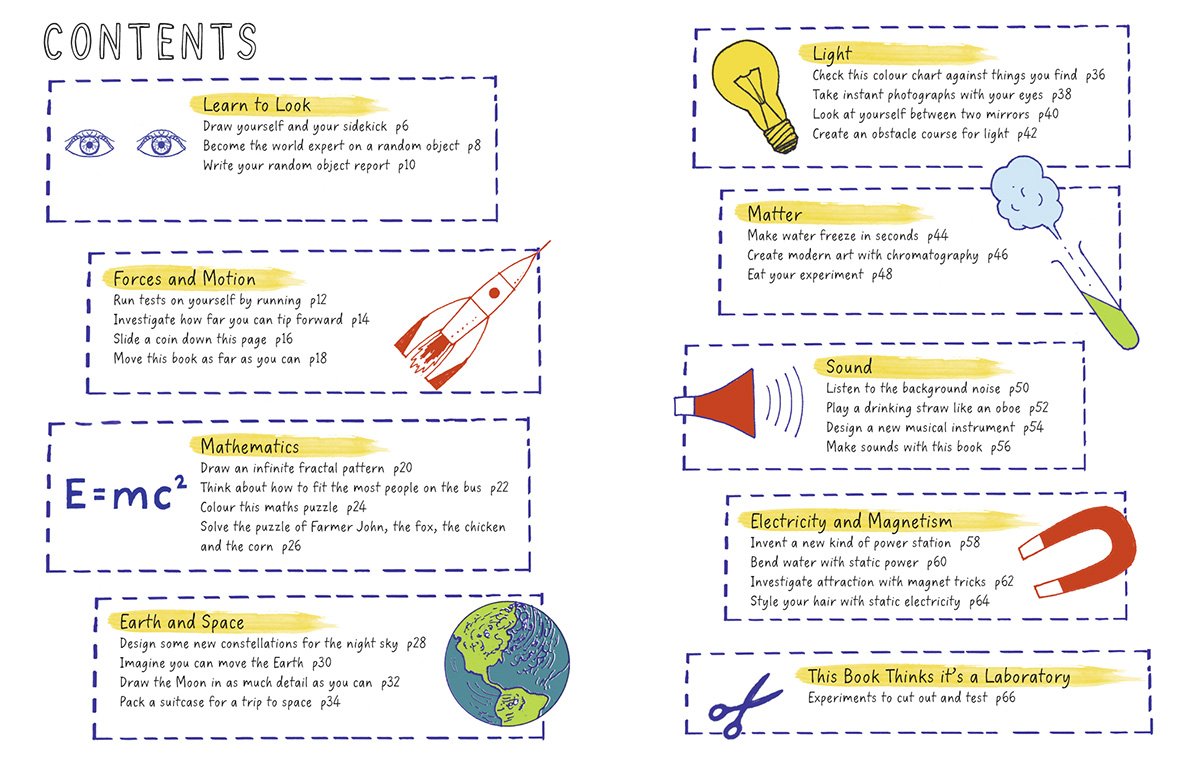 CONTENTS
Learn to Look
Draw yourself and your sidekick p6
Become the world expert on a random object p8
Write your random object report p10
Forces and Motion
Run tests on yourself by running p12
Investigate how far you can tip forward p14
Slide a coin down this page p16
Move this book as far as you can p18
E=mc²
Mathematics
Draw an infinite fractal pattern p20
Think about how to fit the most people on the bus p22
Colour this maths puzzle p24
Solve the puzzle of Farmer John, the fox, the chicken
and the corn p26
Earth and Space
Design some new constellations for the night sky p28
Imagine you can move the Earth p30
Draw the Moon in as much detail as you can p32
Pack a suitcase for a trip to space p34
Light
Check this colour chart against things you find p36
Take instant photographs with your eyes p38
Look at yourself between two mirrors p40
Create an obstacle course for light p42
Matter
Make water freeze in seconds p44
Create modern art with chromatography p46
Eat your experiment p48
Sound
Listen to the background noise p50
Play a drinking straw like an oboe p52
Design a new musical instrument p54
Make sounds with this book p56
Electricity and Magnetism
Invent a new kind of power station p58
Bend water with static power p60
Investigate attraction with magnet tricks p62
Style your hair with static electricity p64
This Book Thinks it's a Laboratory
Experiments to cut out and test p66